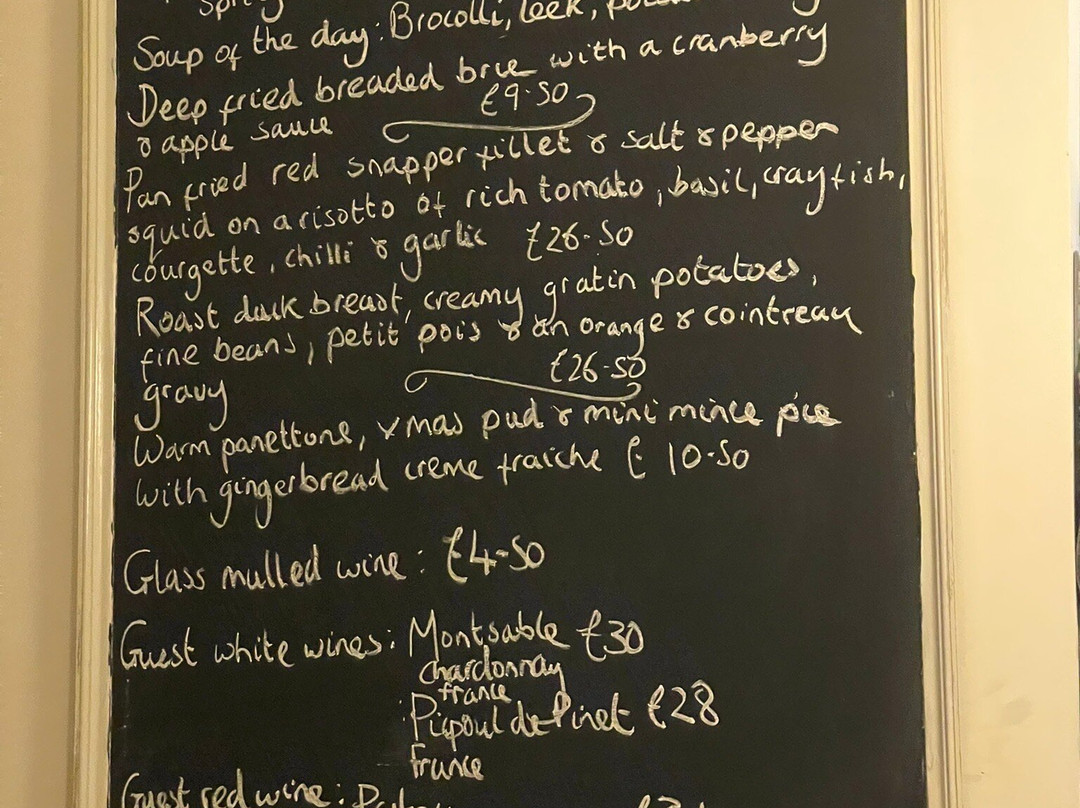 Soup of the day: Brocolli, leek,
Deep fried breaded brie with a cranberry
& apple sauce £9.50
Pan fried red snapper fillet & salt & pepper
squid on a risotto of rich tomato, basil, crayfish,
courgette, chilli & garlic £26.50
Roast duck breast, creamy gratin potatoes,
fine beans, petit pois & an orange & cointreau
gravy £26.50
Warm panettone, xmas pud & mini mince pie
with gingerbread creme fraiche £10.50
Glass mulled wine: £4-50
Guest white wines: Montsable £30
chardonnay
france
Picpoul de Pinet £28
france
Guest red wine: